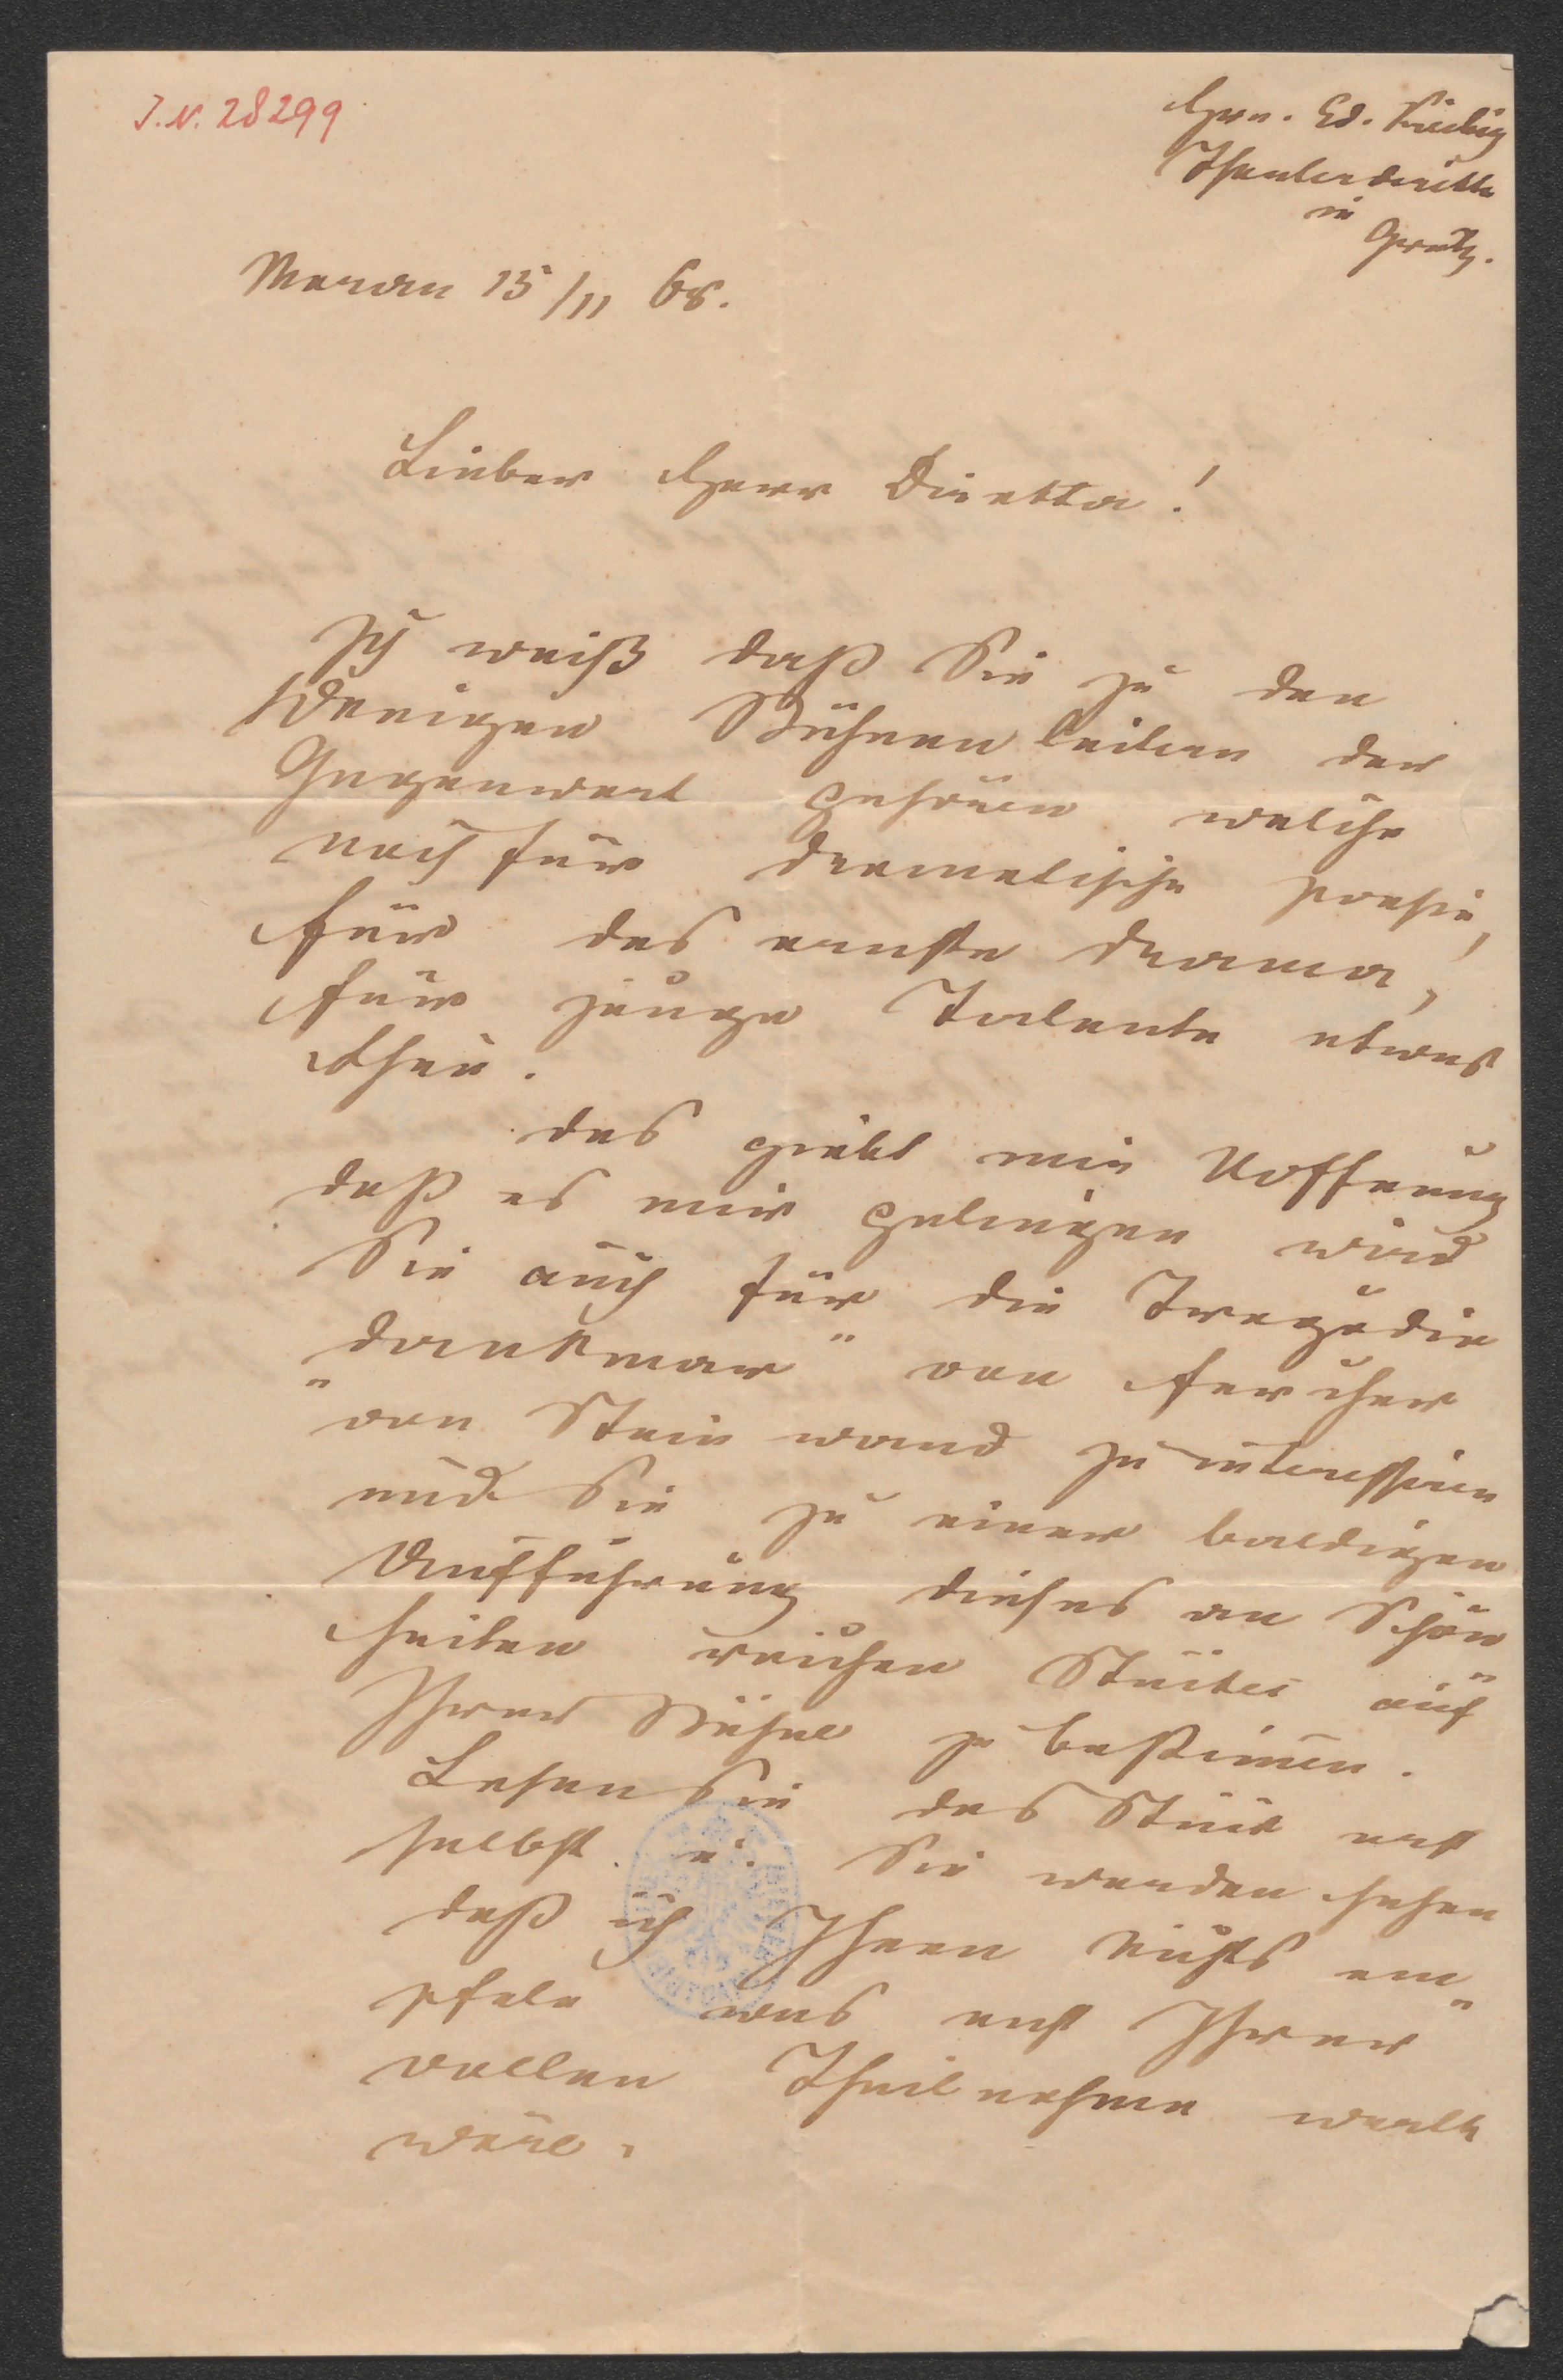 J.N. 28299
Hrn. Ed. Kreibig
Theaterdirektor
in
Gratz.
Meran 15/11 68.
Lieber Herr Direktor!
Ich weiß daß Sie zu den
Wenigen Bühnenleitern der
Gegenwart gehören welche
noch für dramatische Poesie,
für das ernste Drama,
für junge Talente etwas
thun.
Das giebt mir Hoffnung
daß es mir gelingen wird
Sie auch für die Tragödie
„Dankmar" von Fercher
von Steinwand zu interessiren
und Sie zu einer baldigen
Aufführung dieses an Schön„
heiten reichen Stückes auf
Ihrer Bühne zu bestimen.
Lesen Sie das Stück erst
selbst u. Sie werden sehen
daß ich Ihnen Nichts em„
pfele was nicht Ihrer
vollen Theilnahme werth
wäre.